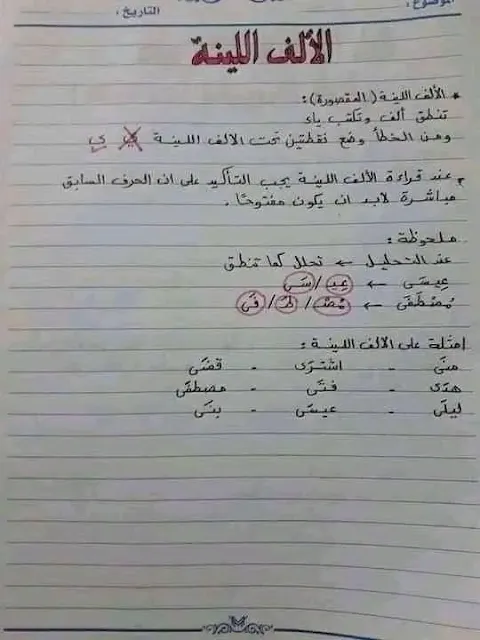 الموضوع :
التاريخ :
الألف اللينة
* الألف اللينة (المقصورة):
تنطق ألف وتكتب ياء
ومن الخطأ وضع نقطتين تحت الالف اللينة ي ى
* عند قراءة الألف اللينة يجب التأكيد على ان الحرف السابق
مباشرة لابد ان يكون مفتوحًا .
ملحوظة :
عند التحليل ← تحلل كما تنطق
عِيسَى ← عِيـ / سَى
مُصْطَفَى ← مُصْ / طَـ / فَى
امثلة على الالف اللينة :
منَى - اشترَى - قضَى
هدَى - فتَى - مصطفَى
ليلَى - عيسَى - بنَى